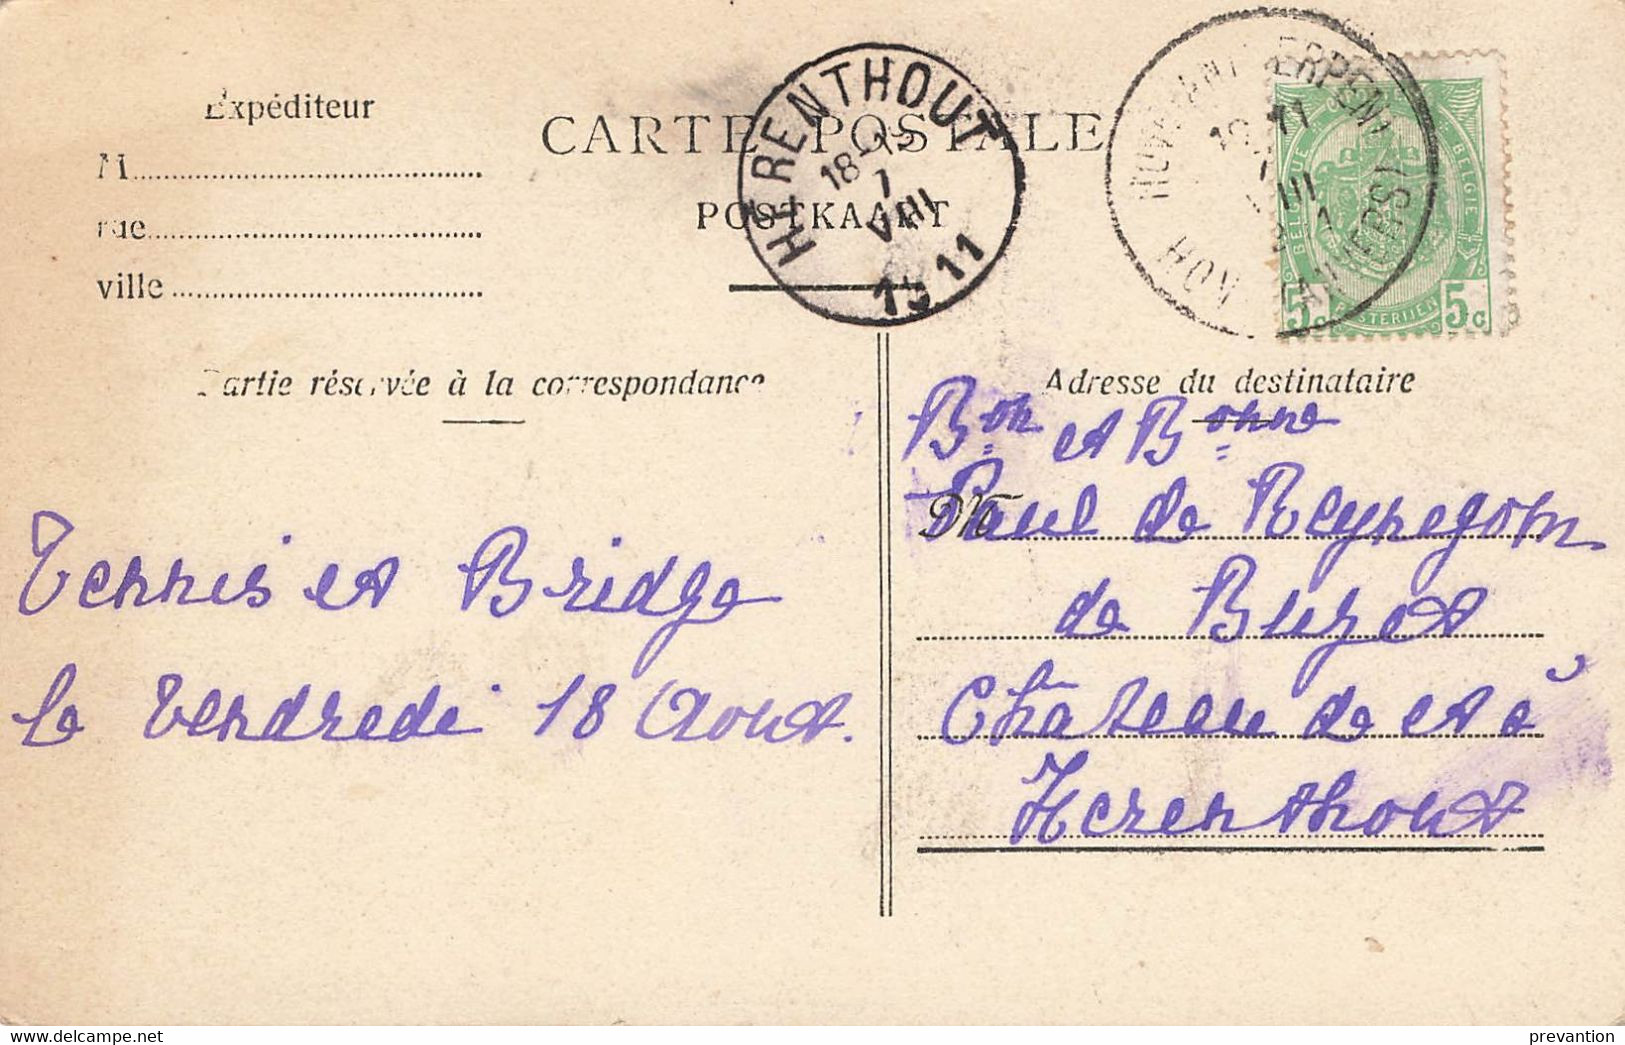 Expéditeur
M
rue
ville
CARTE POSTALE
POSTKAART
HERENTHOUT
18-19
7
VIII
1911
ANTWERPEN
(ANVERS)
BELGIQUE
BELGIE
5c
5c
Partie réservée à la correspondance
Adresse du destinataire
Tennis et Bridge
le Vendredi 18 Aout.
Bon et Bonne
M
Paul de Reynegom
de Buzet
Château de et à
Herenthout
delcampe.net
prevantion